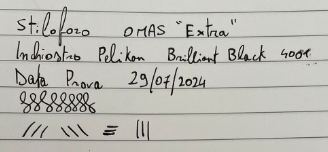 Stilofozo OMAS "Extra"
Inchiostro Pelikan Brilliant Black 4001
Data Prova 29/07/2024